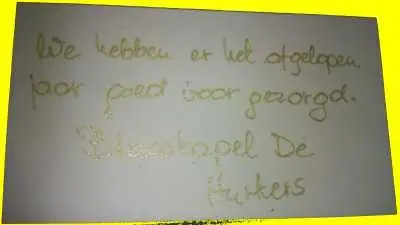 We hebben er het afgelopen
jaar goed voor gezorgd.
Blaaskapel De
Hurkers